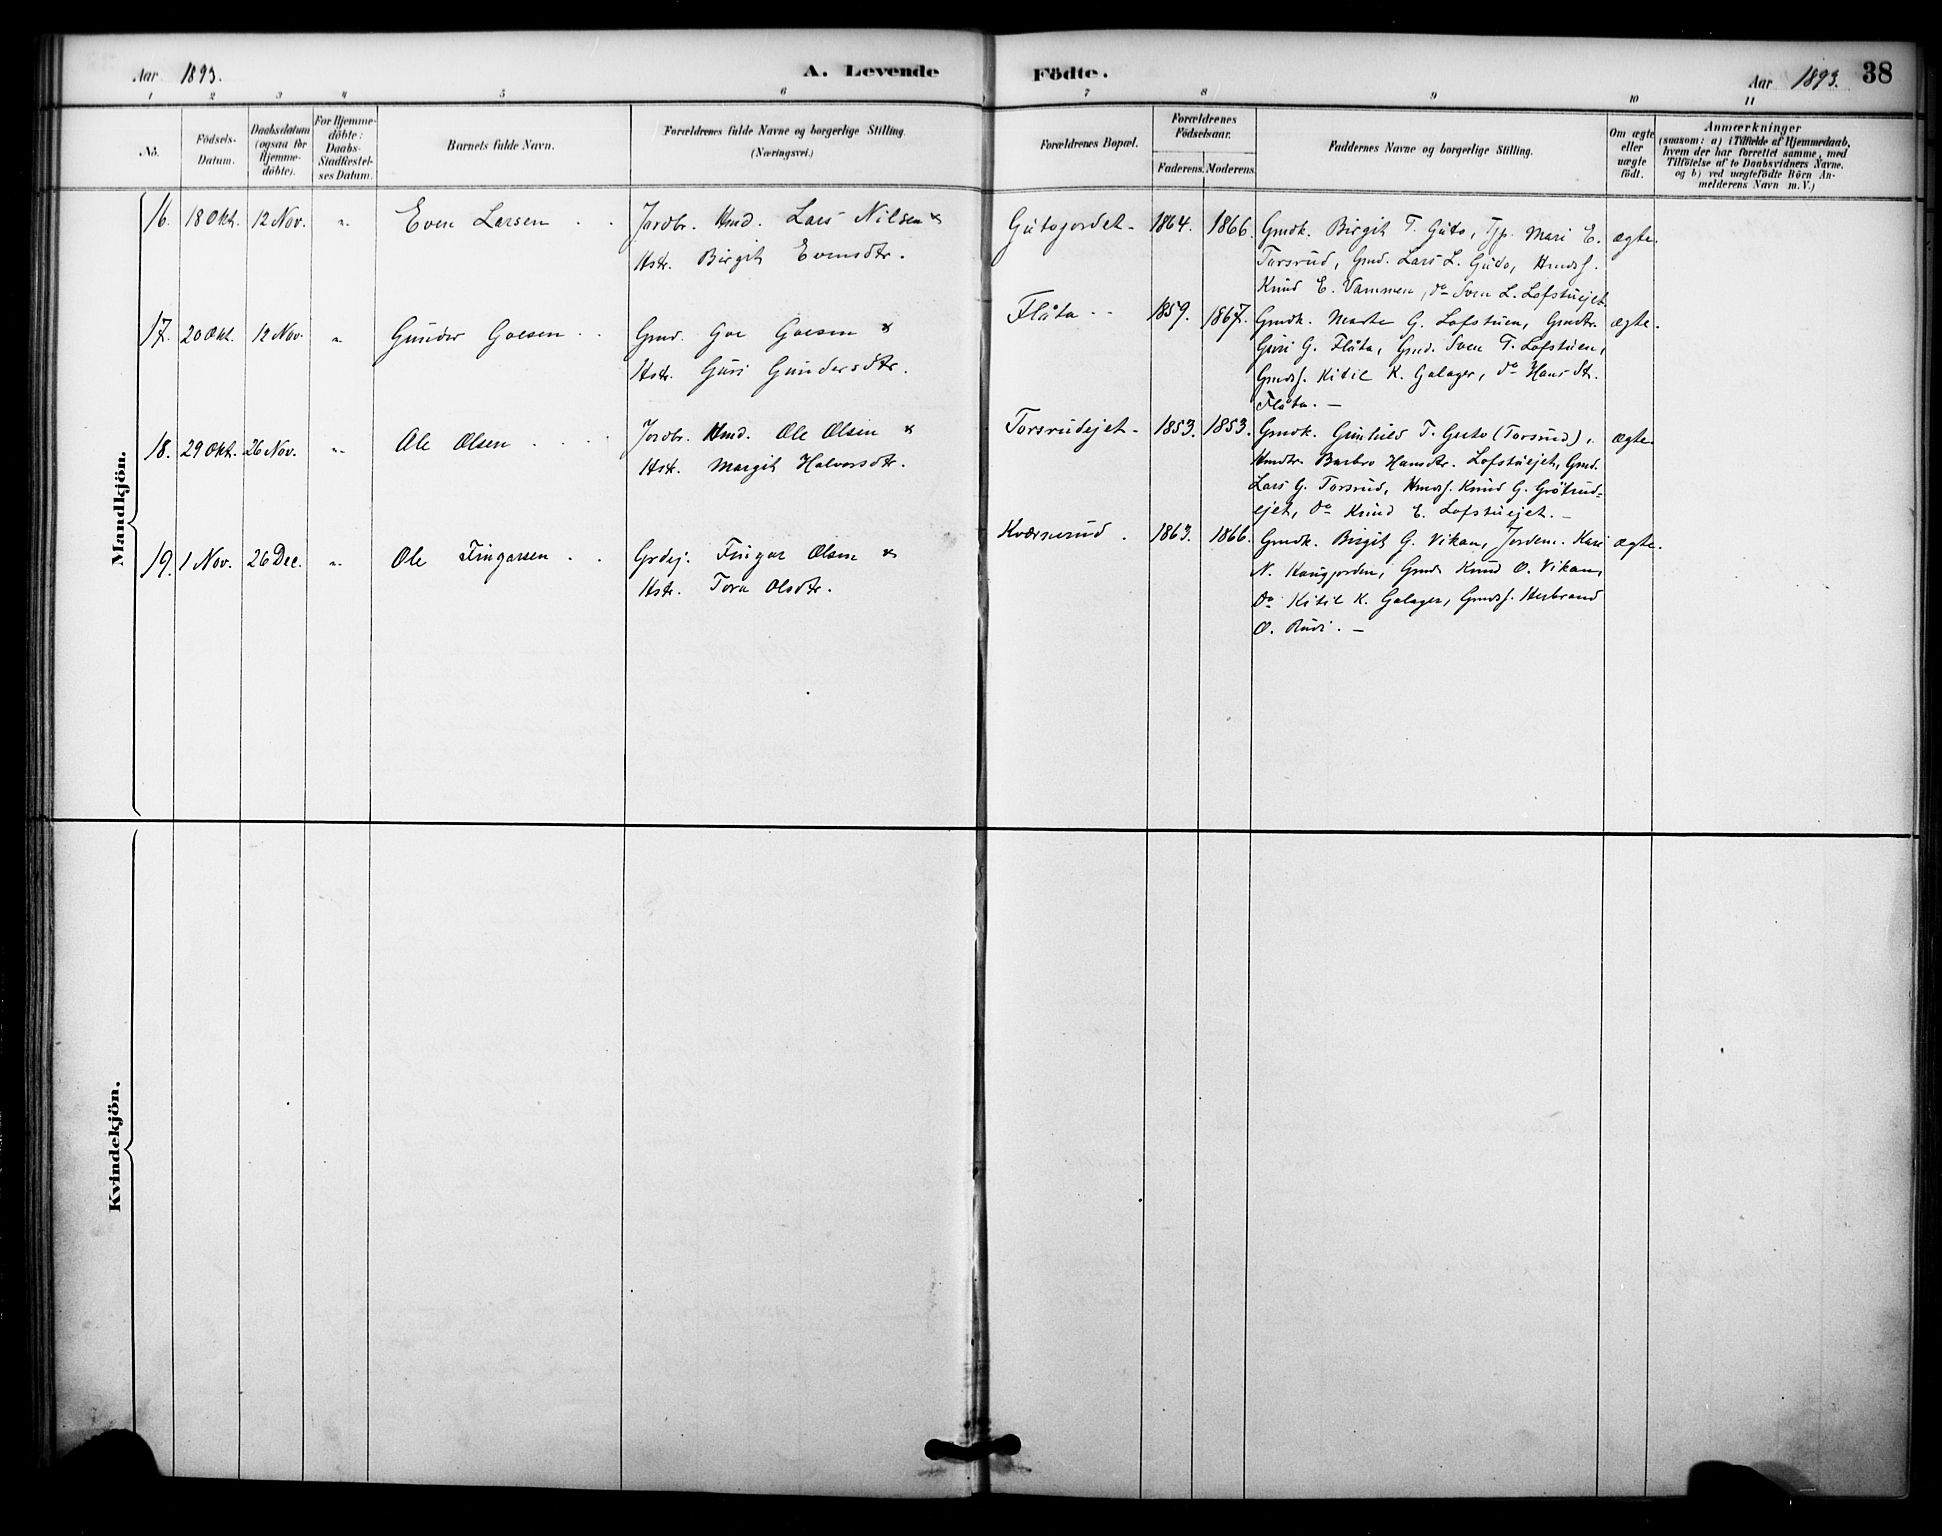 Aar 1893.
A. Levende Födte.
Aar 1893. 38
1 2 3 4 5 6 7 8 9 10 11
No.
Födsels-Datum.
Daabsdatum (ogsaa for Hjemme-döbte).
For Hjemme-döbte: Daabs-Stadfæstel-ses Datum.
Barnets fulde Navn.
Forældrenes fulde Navne og borgerlige Stilling. (Næringsvei.)
Forældrenes Bopæl.
Forældrenes Födselsaar.
Faderens. Moderens.
Faddernes Navne og borgerlige Stilling.
Om ægte eller uægte födt.
Anmærkninger
(saasom: a) i Tilfælde af Hjemmedaab, hvem der har forrettet samme, med Tilföielse af to Daabsvidners Navne, og b) ved uægtefödte Börn An-melderens Navn m. V.)
Mandkjön.
16. 18 Okt. 12 Nov. " Even Larsen . . Jordbr. Hmd. Lars Nilsen &
Hstr. Birgit Evensdtr.
Gutogjordet - 1864. 1866. Gmdk. Birgit T. Guto, Tjp. Mari E. ægte.
Torsrud, Gmd. Lars L. Guto, Hmdsf.
Knud E. Vammen, do Sven L. Lofstuejet
17. 20 Okt. 12 Nov. " Gunder Goesen . . Gmd. Goe Goesen &
Hstr. Guri Gundersdtr.
Flåta - - 1859. 1867. Gmdk. Marte G. Lofstuen, Gmdtr. ægte.
Guri G. Flåta, Gmd. Sven T. Lofstuen,
Gmdsf. Kitil K. Golager, do Hans St.
Flåta. —
18. 29 Okt. 26 Nov. " Ole Olsen . . . . Jordbr. Hmd. Ole Olsen &
Hstr. Margit Halvorsdtr.
Torsrudejet - 1853. 1853. Gmdk. Gunhild T. Guto (Torsrud), ægte.
Hmdtr. Barbro Hansdtr. Lofstuejet, Gmd.
Lars G. Torsrud, Hmdsf. Knud G. Grötrud-
ejet, do Knud E. Lofstuejet. —
19. 1 Nov. 26 Dec. " Ole Fingarsen . . Grdej. Fingar Olsen &
Hstr. Tora Olsdtr.
Kværnerud . 1863. 1866. Gmdk. Birgit G. Vikan, Jordem. Kari ægte.
N. Haugjorden, Gmd. Knud O. Vikan,
do Kitil K. Golager, Gmdsf. Herbrand
O. Rudi. —
Kvindekjön.